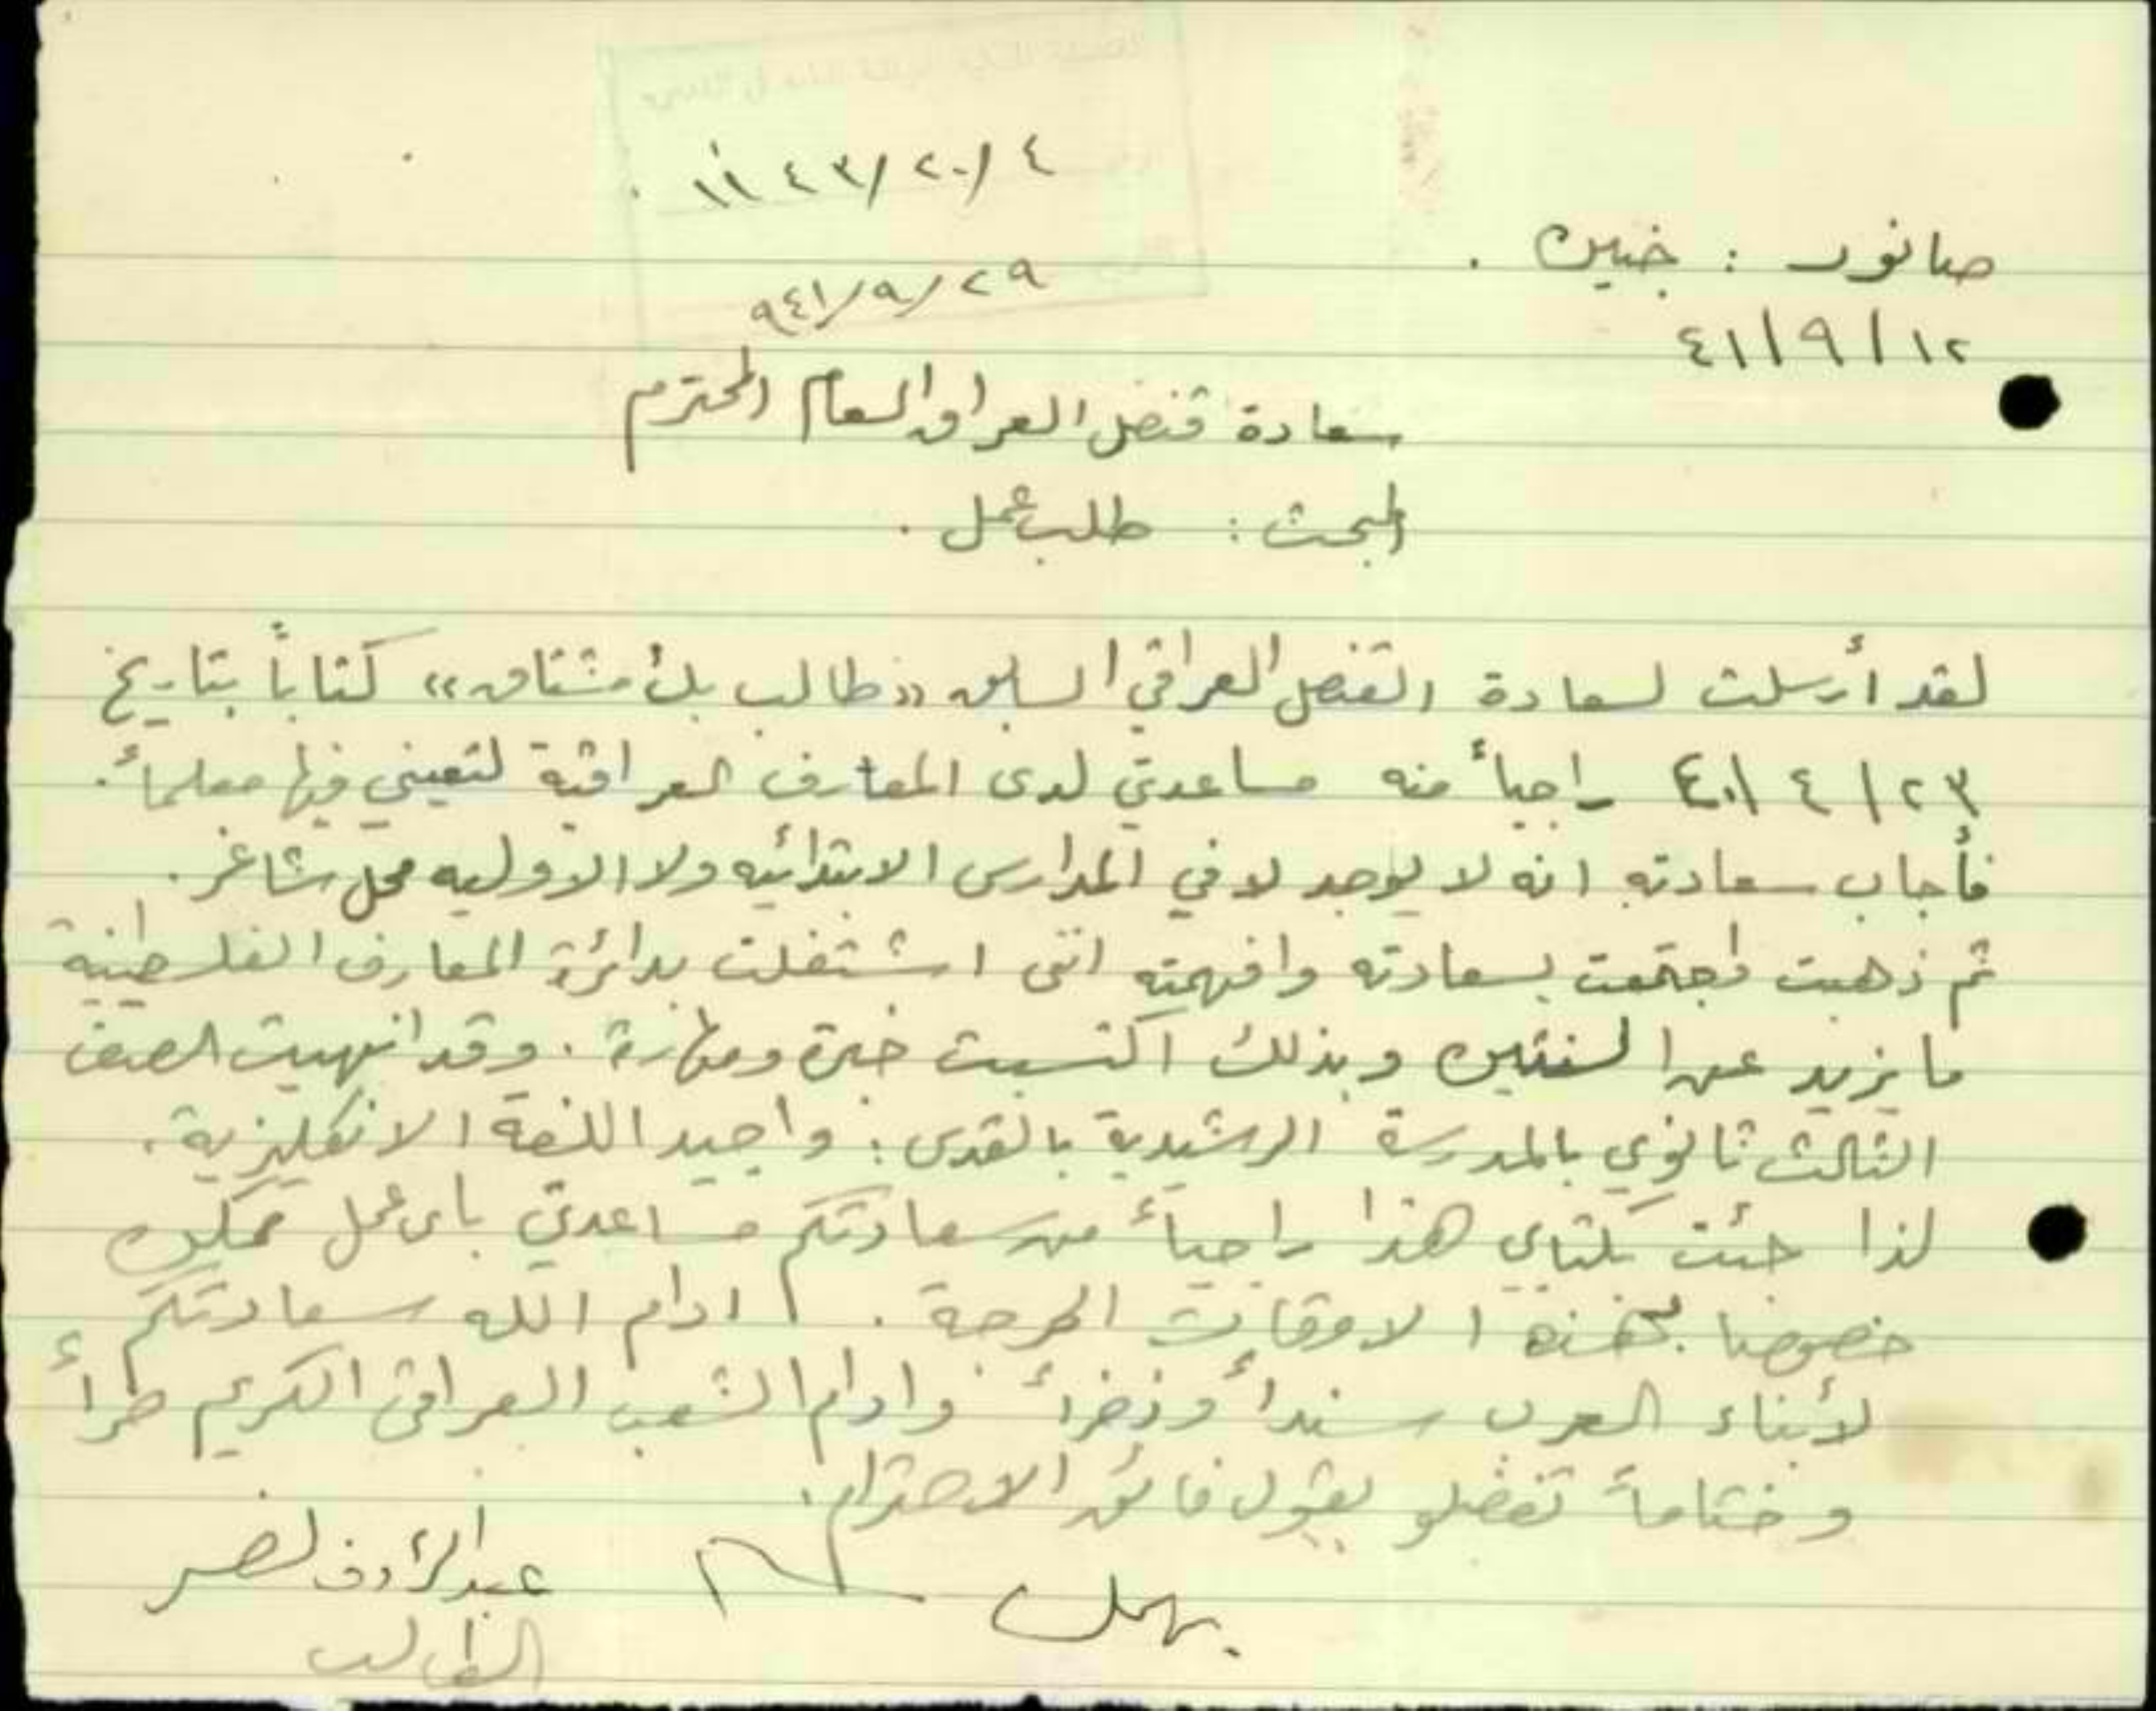 ٤/٢٠/١١٤٣
صانور : جنين .
٢٩/٩/٩٤١
١٢/٩/٤١
سعادة قنصل العراق العام المحترم
المبحث : طلب عمل .
لقد أرسلت لسعادة القنصل العراقي السابق «طالب بك مشتاق» كتاباً بتاريخ
٢٣/٤/٤٠ راجياً منه مساعدتي لدى المعارف العراقية لتعيني فيها معلماً .
فأجاب سعادته انه لا يوجد لا في المدارس الابتدائيه ولا الاوليه محل شاغر .
ثم ذهبت واجتمعت بسعادته وافهمته انني اشتغلت بدائرة المعارف الفلسطينية
ما يزيد عن السنتين وبذلك اكتسبت خبرة ومهارة . وقد انهيت الصف
الثالث ثانوي بالمدرسة الرشيدية بالقدس : واجيد اللغة الانكليزية .
لذا جئت بكتابي هذا راجياً من سعادتكم مساعدتي باي عمل ممكن
خصوصا بهذه الاوقات الحرجة . ادام الله سعادتكم
لأبناء العرب سنداً وذخراً وادام الشعب العراقي الكريم طراً
وختاماً تفضلو بقبول فائق الاحترام .
يهمل
عبد الرؤوف نصر
الطالب